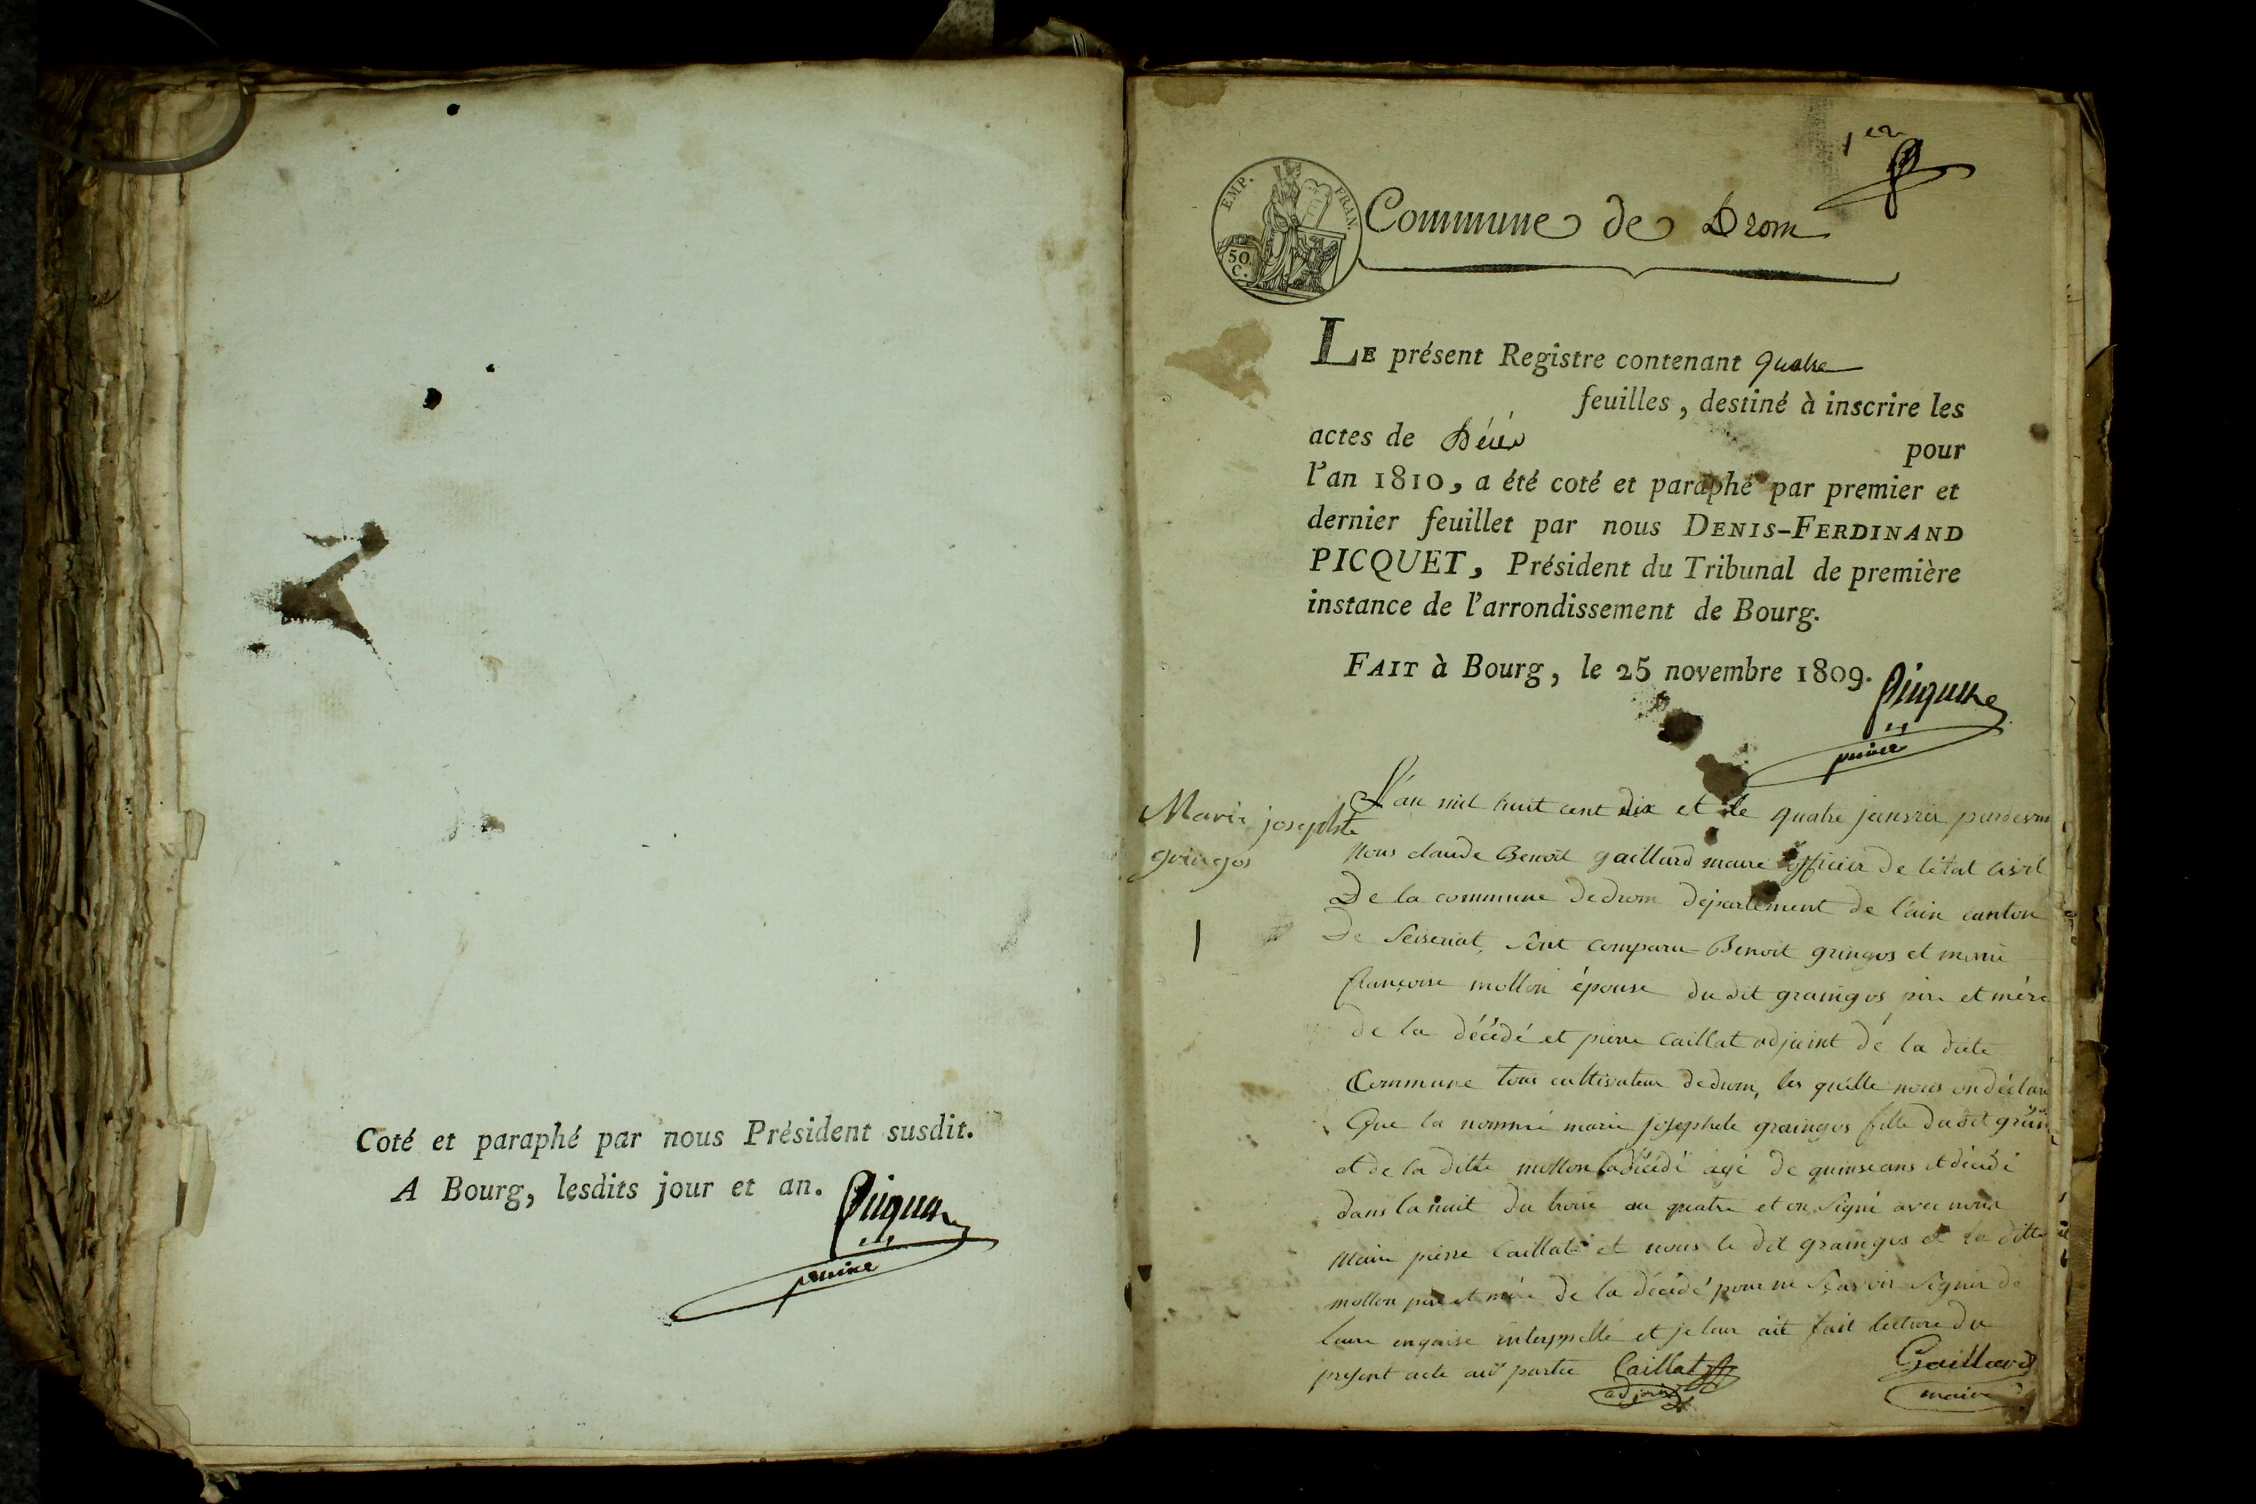 Coté et paraphé par nous Président susdit.
A Bourg, lesdits jour et an.
Picquet
1er
EMP. FRAN.
50
C.
Commune de Drom
LE présent Registre contenant quatre
feuilles, destiné à inscrire les
actes de Décès pour
l'an 1810, a été coté et paraphé par premier et
dernier feuillet par nous DENIS-FERDINAND
PICQUET, Président du Tribunal de première
instance de l'arrondissement de Bourg.
FAIT à Bourg, le 25 novembre 1809.
Picquet
Marie josephte
gringos
1
L'an mil huit cent dix et le quatre janvier pardevan
nous claude Benoit gaillard maire officier de l'état civil
De la commune de drom département de l'ain canton
De Seiseriat, sont comparu Benoit gringos et marie
françoise mollon épouse du dit graingos père et mère
de la décédé et pierre caillat adjoint dé la dite
Commune tous cultivateur de drom, les quelle nous on déclaré
Que la nommé marie josephete graingos fille du dit grain
et de la ditte mollon décédé agé de quinse ans et décédé
dans la nuit du trois au quatre et on signé avec nous
maire pierre Caillat et nous le dit graingos et la ditte
mollon père et mère de la décédé pour ne sçavoir signer de
leure enquise interppellé et je leur ait fait lecture du
present acte au partie Caillat
adjoint
Gaillard
maire